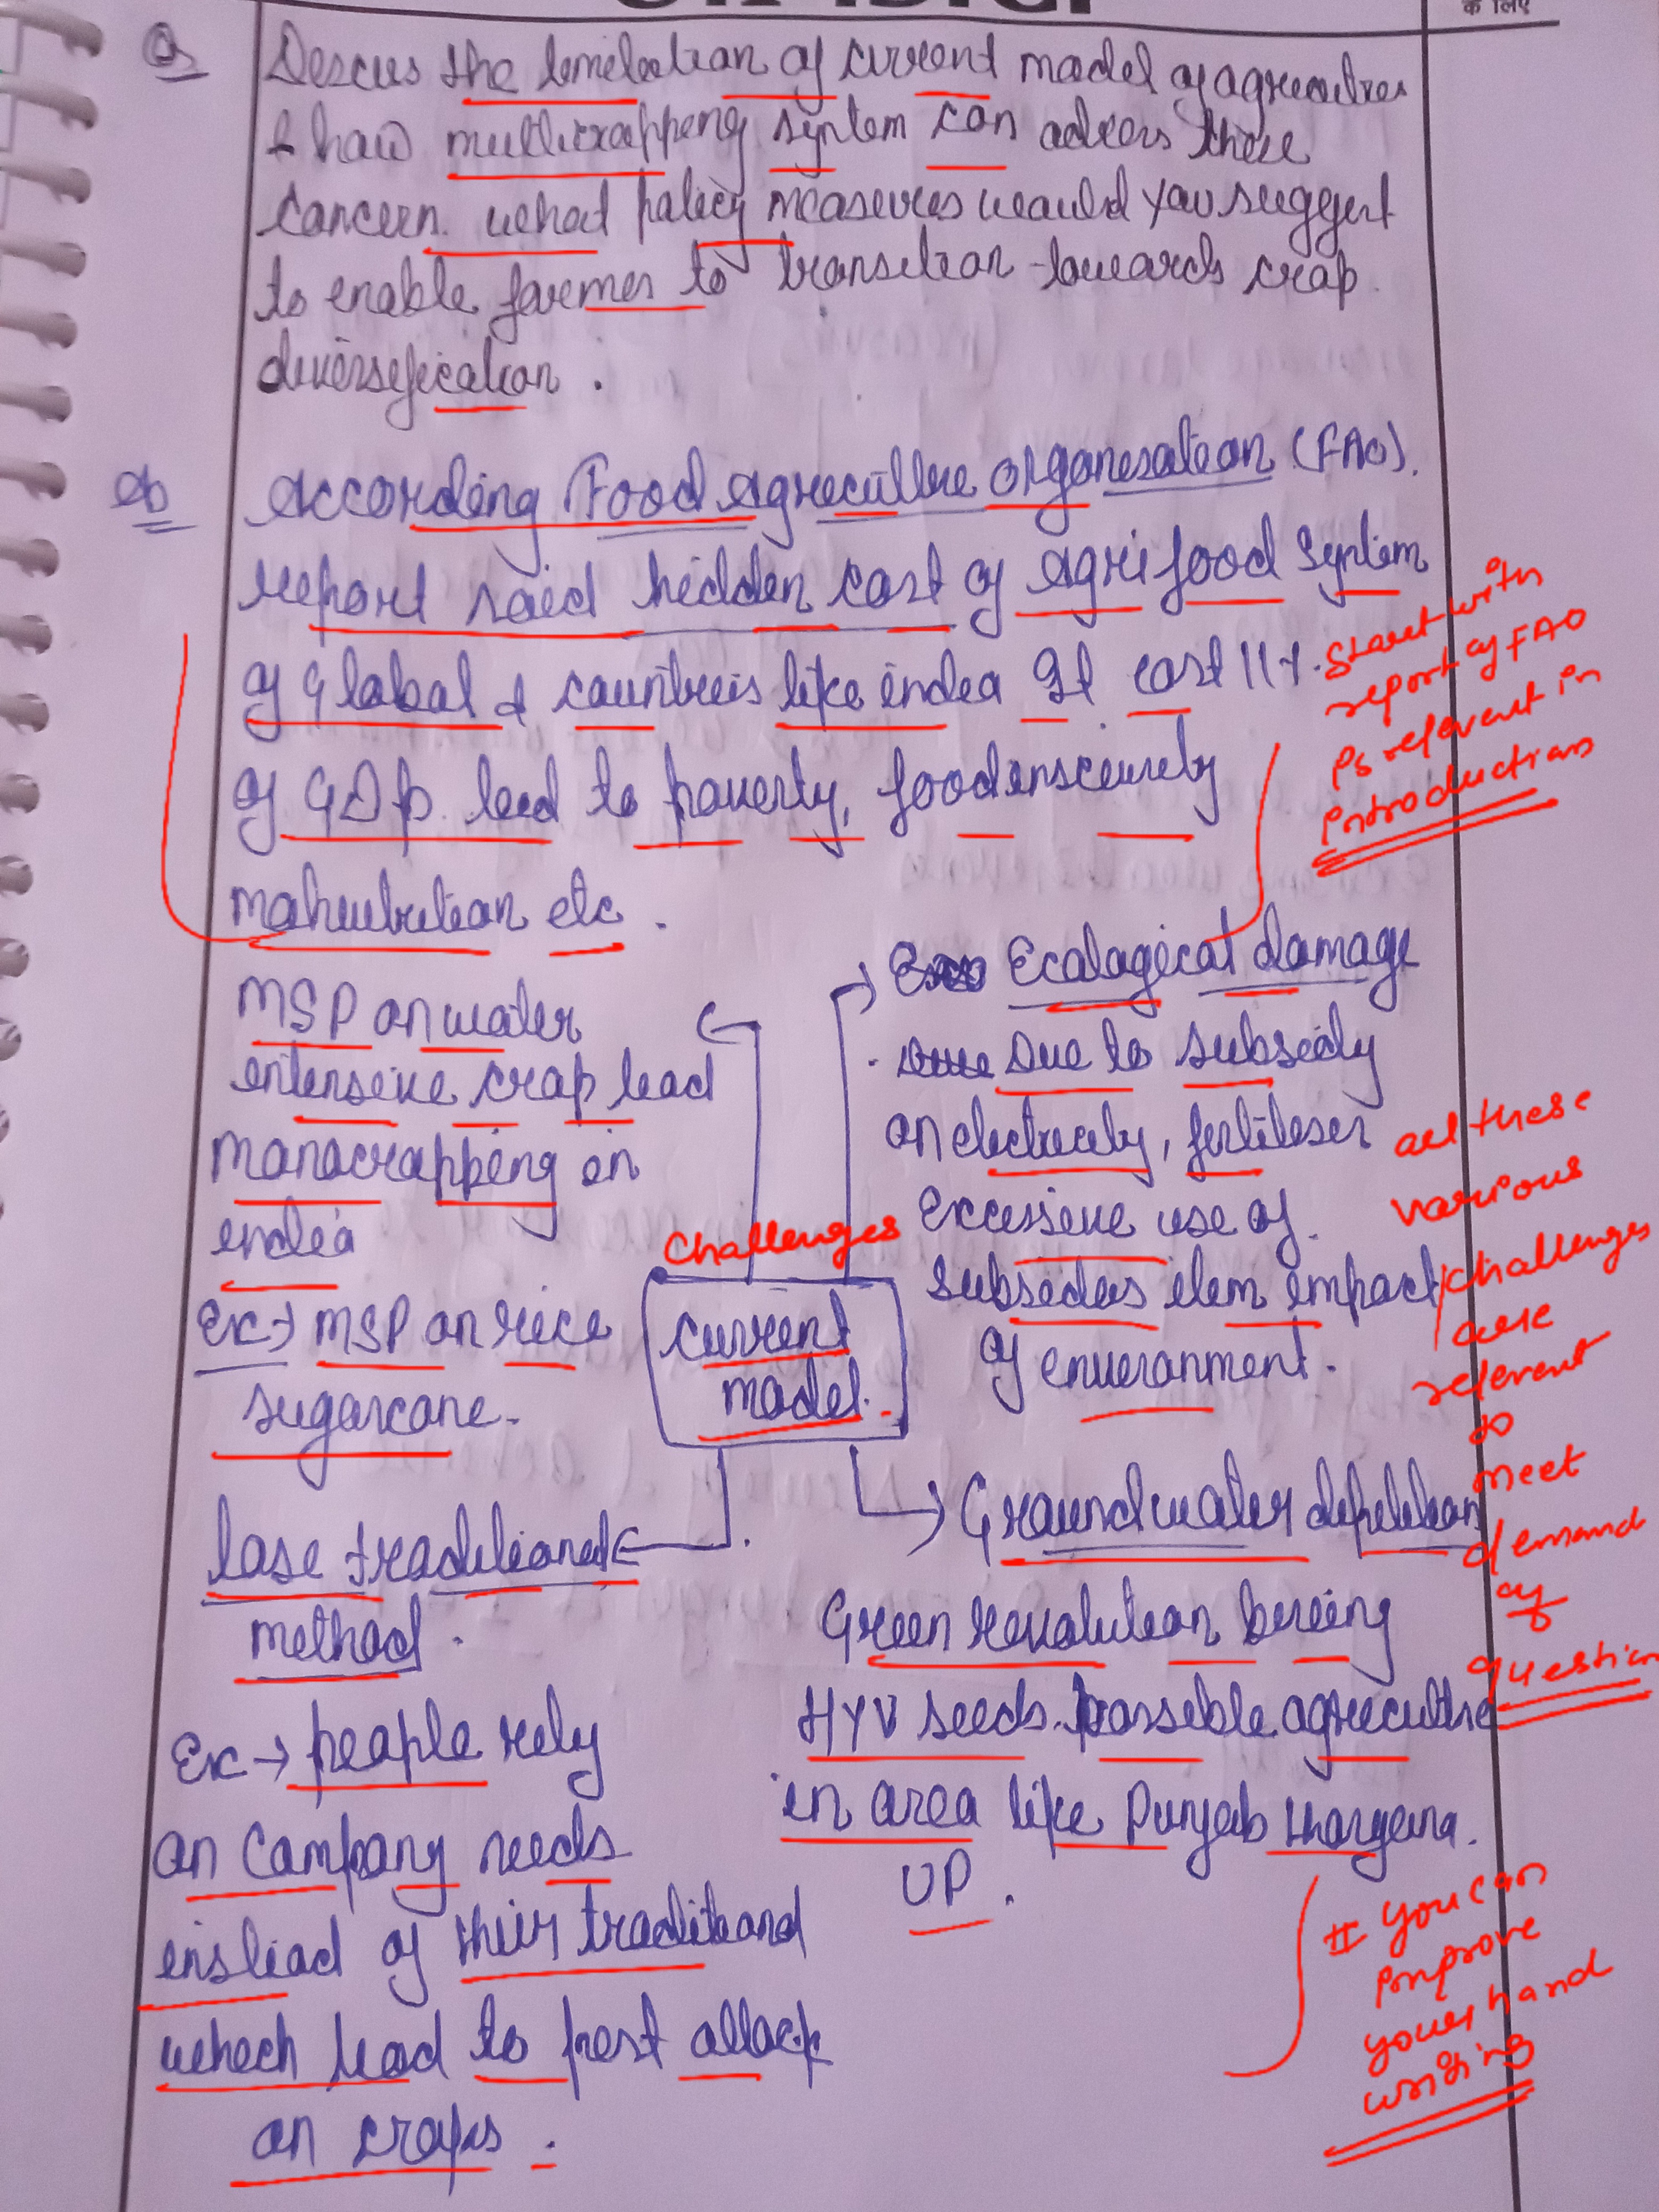 के लिए
Q Descus the limitation of current model of agriculture
& how multicropping system can adress these
concern. what policy measures would you suggest
to enable farmer to transition towards crop
diversification.
According Food Agriculture organisation (FAO).
report said hidden cost of Agrifood system
of Global & countries like india It cost 11%.
of GDP. lead to poverty, foodinsecurity
malnutrition etc.
Start with
report of FAO
is relevent in
introduction
MSP on water
intensive crop lead
monocropping in
india
Ex → MSP on rice
sugarcane.
Ecological damage
Due to subsidy
on electricity, fertiliser
Excessive use of.
subsidies impact
of environment.
Challenges
current
model.
all these
various
challenges
are
relevent
to
meet
demand
of
question
lose traditional
method.
Ex → people rely
on Company seeds
instead of their traditional
which lead to pest attack
on crops.
Groundwater depletion
Green revolution bring
HYV seeds. possible agriculture
in area like Punjab Haryana.
UP.
# You can
improve
your hand
writing